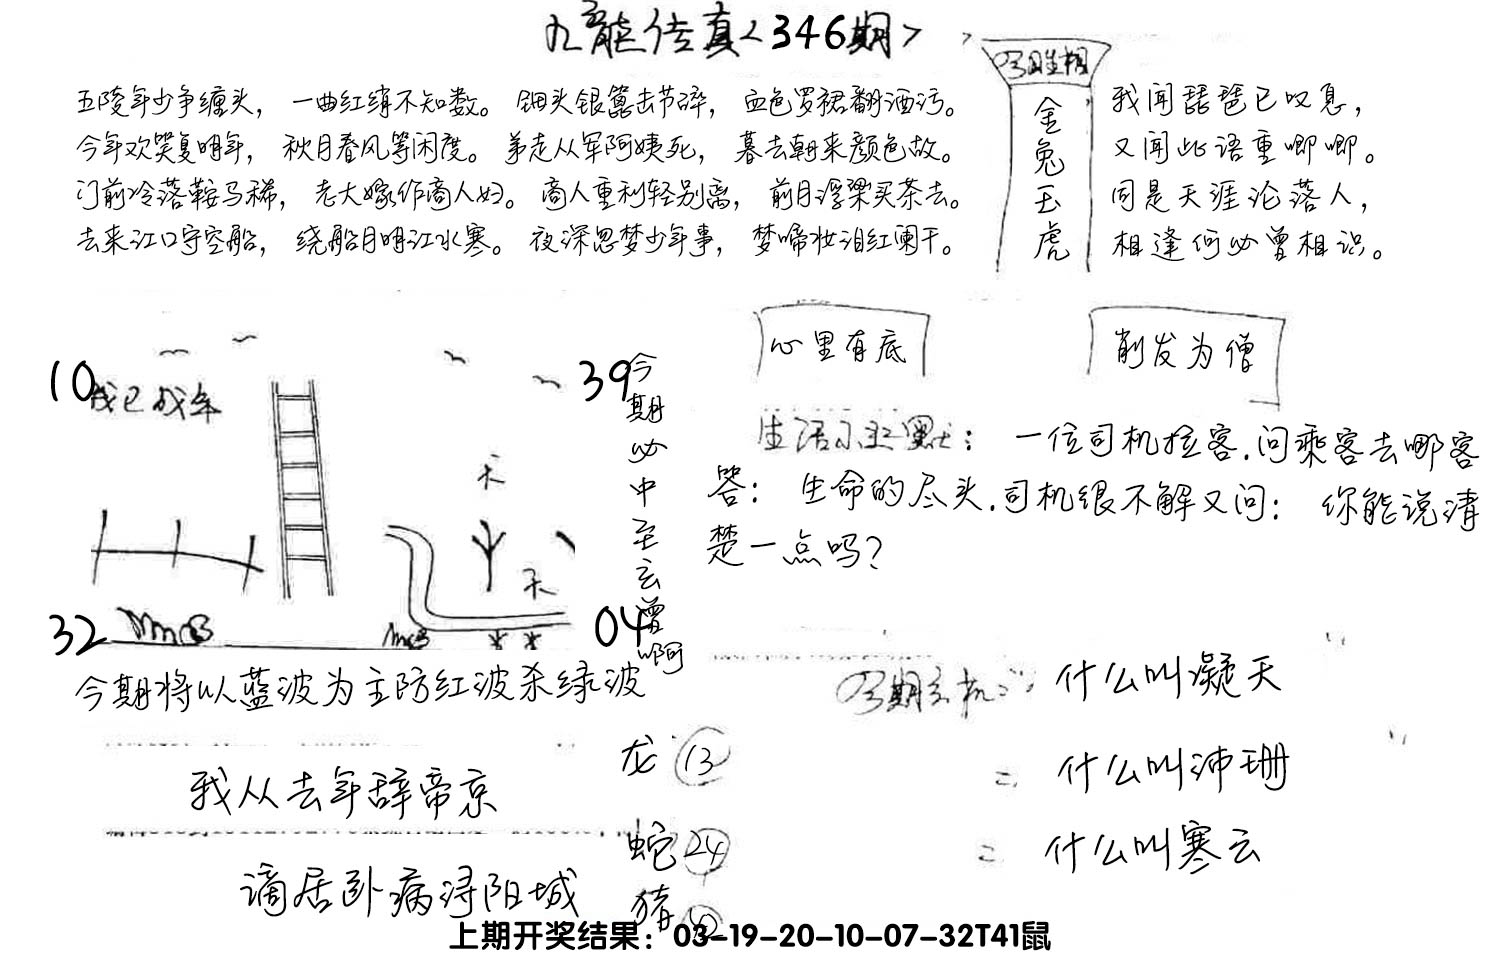 九龙传真<346期>
五陵年少争缠头，一曲红绡不知数。钿头银篦击节碎，血色罗裙翻酒污。
今年欢笑复明年，秋月春风等闲度。弟走从军阿姨死，暮去朝来颜色故。
门前冷落鞍马稀，老大嫁作商人妇。商人重利轻别离，前月浮梁买茶去。
去来江口守空船，绕船月明江水寒。夜深忽梦少年事，梦啼妆泪红阑干。
金兔玉虎
我闻琵琶已叹息，
又闻此语重唧唧。
同是天涯沦落人，
相逢何必曾相识。
10
我已成年
39
天
天
32
04
今期必中至云曾啊
今期将以蓝波为主防红波杀绿波
心里有底
削发为僧
生活小幽默：一位司机拉客.问乘客去哪客
答：生命的尽头.司机很不解又问：你能说清
楚一点吗？
今期玄机：什么叫凝天
=：什么叫沛珊
=：什么叫寒云
我从去年辞帝京
谪居卧病浔阳城
龙 13
蛇 24
猪
上期开奖结果：03-19-20-10-07-32T41鼠